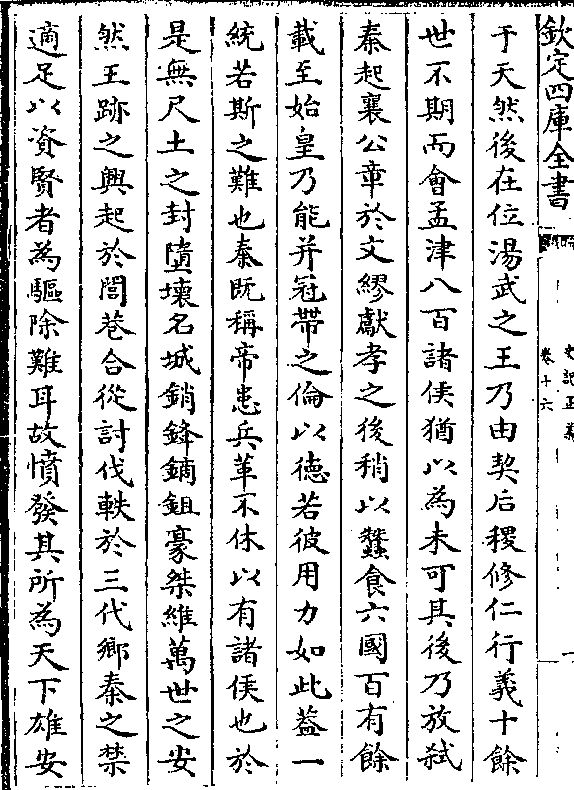 欽定四庫全書
史記正義
卷十六
一
于天然後在位湯武之王乃由契后稷修仁行義十餘
世不期而會孟津八百諸侯猶以為未可其後乃放弑
秦起襄公章於文繆獻孝之後稍以蠶食六國百有餘
載至始皇乃能并冠帶之倫以德若彼用力如此蓋一
統若斯之難也秦既稱帝患兵革不休以有諸侯也於
是無尺土之封墮壞名城銷鋒鏑鉏豪桀維萬世之安
然王跡之興起於閭巷合從討伐軼於三代鄉秦之禁
適足以資賢者為驅除難耳故憤發其所為天下雄安